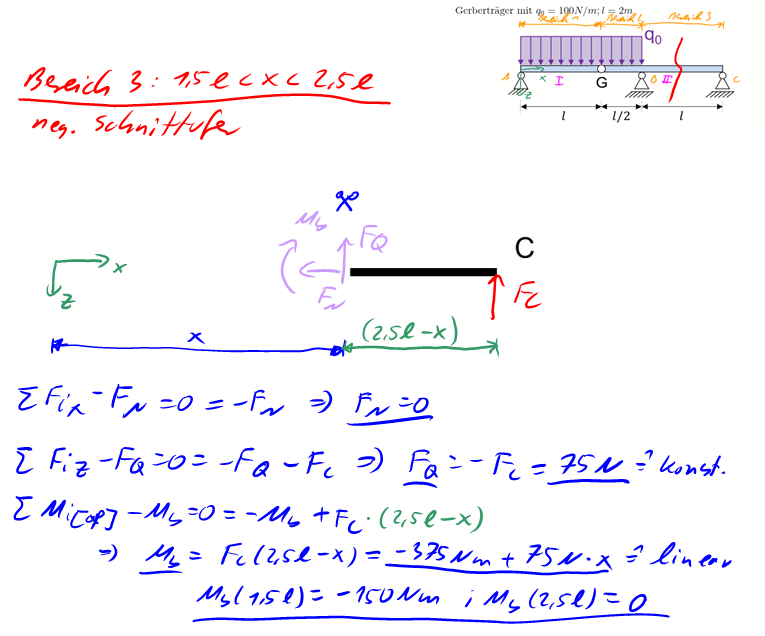 Gerberträger mit q₀ = 100N/m; l = 2m
Bereich 1 Bereich 2 Bereich 3
q₀
A x I G B II C
z
l l/2 l
Bereich 3: 1,5l < x < 2,5l
neg. Schnittufer
Mb FQ
FN
C
FC
x
z
x (2,5l-x)
ΣFix -FN = 0 = -FN ⇒ FN = 0
ΣFiz -FQ = 0 = -FQ - FC ⇒ FQ = -FC = 75N ≙ konst.
ΣMi[φ] -Mb = 0 = -Mb + FC · (2,5l-x)
⇒ Mb = FC(2,5l-x) = -375Nm + 75N·x ≙ linear
Mb(1,5l) = -150Nm ; Mb(2,5l) = 0